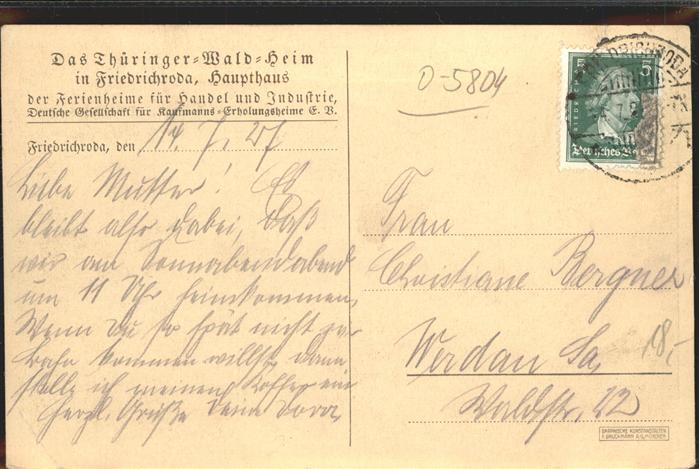 Das Thüringer-Wald-Heim
in Friedrichroda, Haupthaus
der Ferienheime für Handel und Industrie,
Deutsche Gesellschaft für Kaufmanns-Erholungsheime E. V.
Friedrichroda, den 14. 7. 27
Liebe Mutter! Es
bleibt also dabei, daß
wir am Sonnabendabend
um 11 Uhr heimkommen.
Wenn Du so spät nicht zur
Bahn kommen willst, dann
stelle ich meinen Koffer ein
Herzl. Grüße Deine Dora
O-5804
5
Deutsches
FRIEDRICHRODA
Frau
Christiane Bergner
Werdau Sa.
Waldstr. 22
18,-
GRAPHISCHE KUNSTANSTALTEN
F. BRUCKMANN A.G. MÜNCHEN